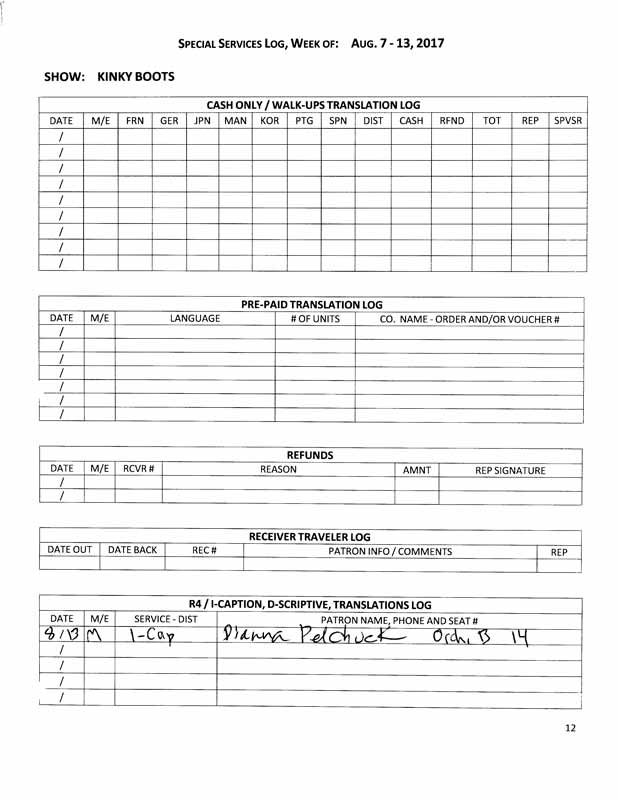 SPECIAL SERVICES LOG, WEEK OF: AUG. 7 - 13, 2017
SHOW: KINKY BOOTS
CASH ONLY / WALK-UPS TRANSLATION LOG
DATE M/E FRN GER JPN MAN KOR PTG SPN DIST CASH RFND TOT REP SPVSR
/
/
/
/
/
/
/
/
/
PRE-PAID TRANSLATION LOG
DATE M/E LANGUAGE # OF UNITS CO. NAME - ORDER AND/OR VOUCHER #
/
/
/
/
/
/
/
REFUNDS
DATE M/E RCVR # REASON AMNT REP SIGNATURE
/
/
RECEIVER TRAVELER LOG
DATE OUT DATE BACK REC # PATRON INFO / COMMENTS REP
R4 / I-CAPTION, D-SCRIPTIVE, TRANSLATIONS LOG
DATE M/E SERVICE - DIST PATRON NAME, PHONE AND SEAT #
8/13 M I-Cap Dianna Pelchuck Orch, B 14
/
/
/
/
12